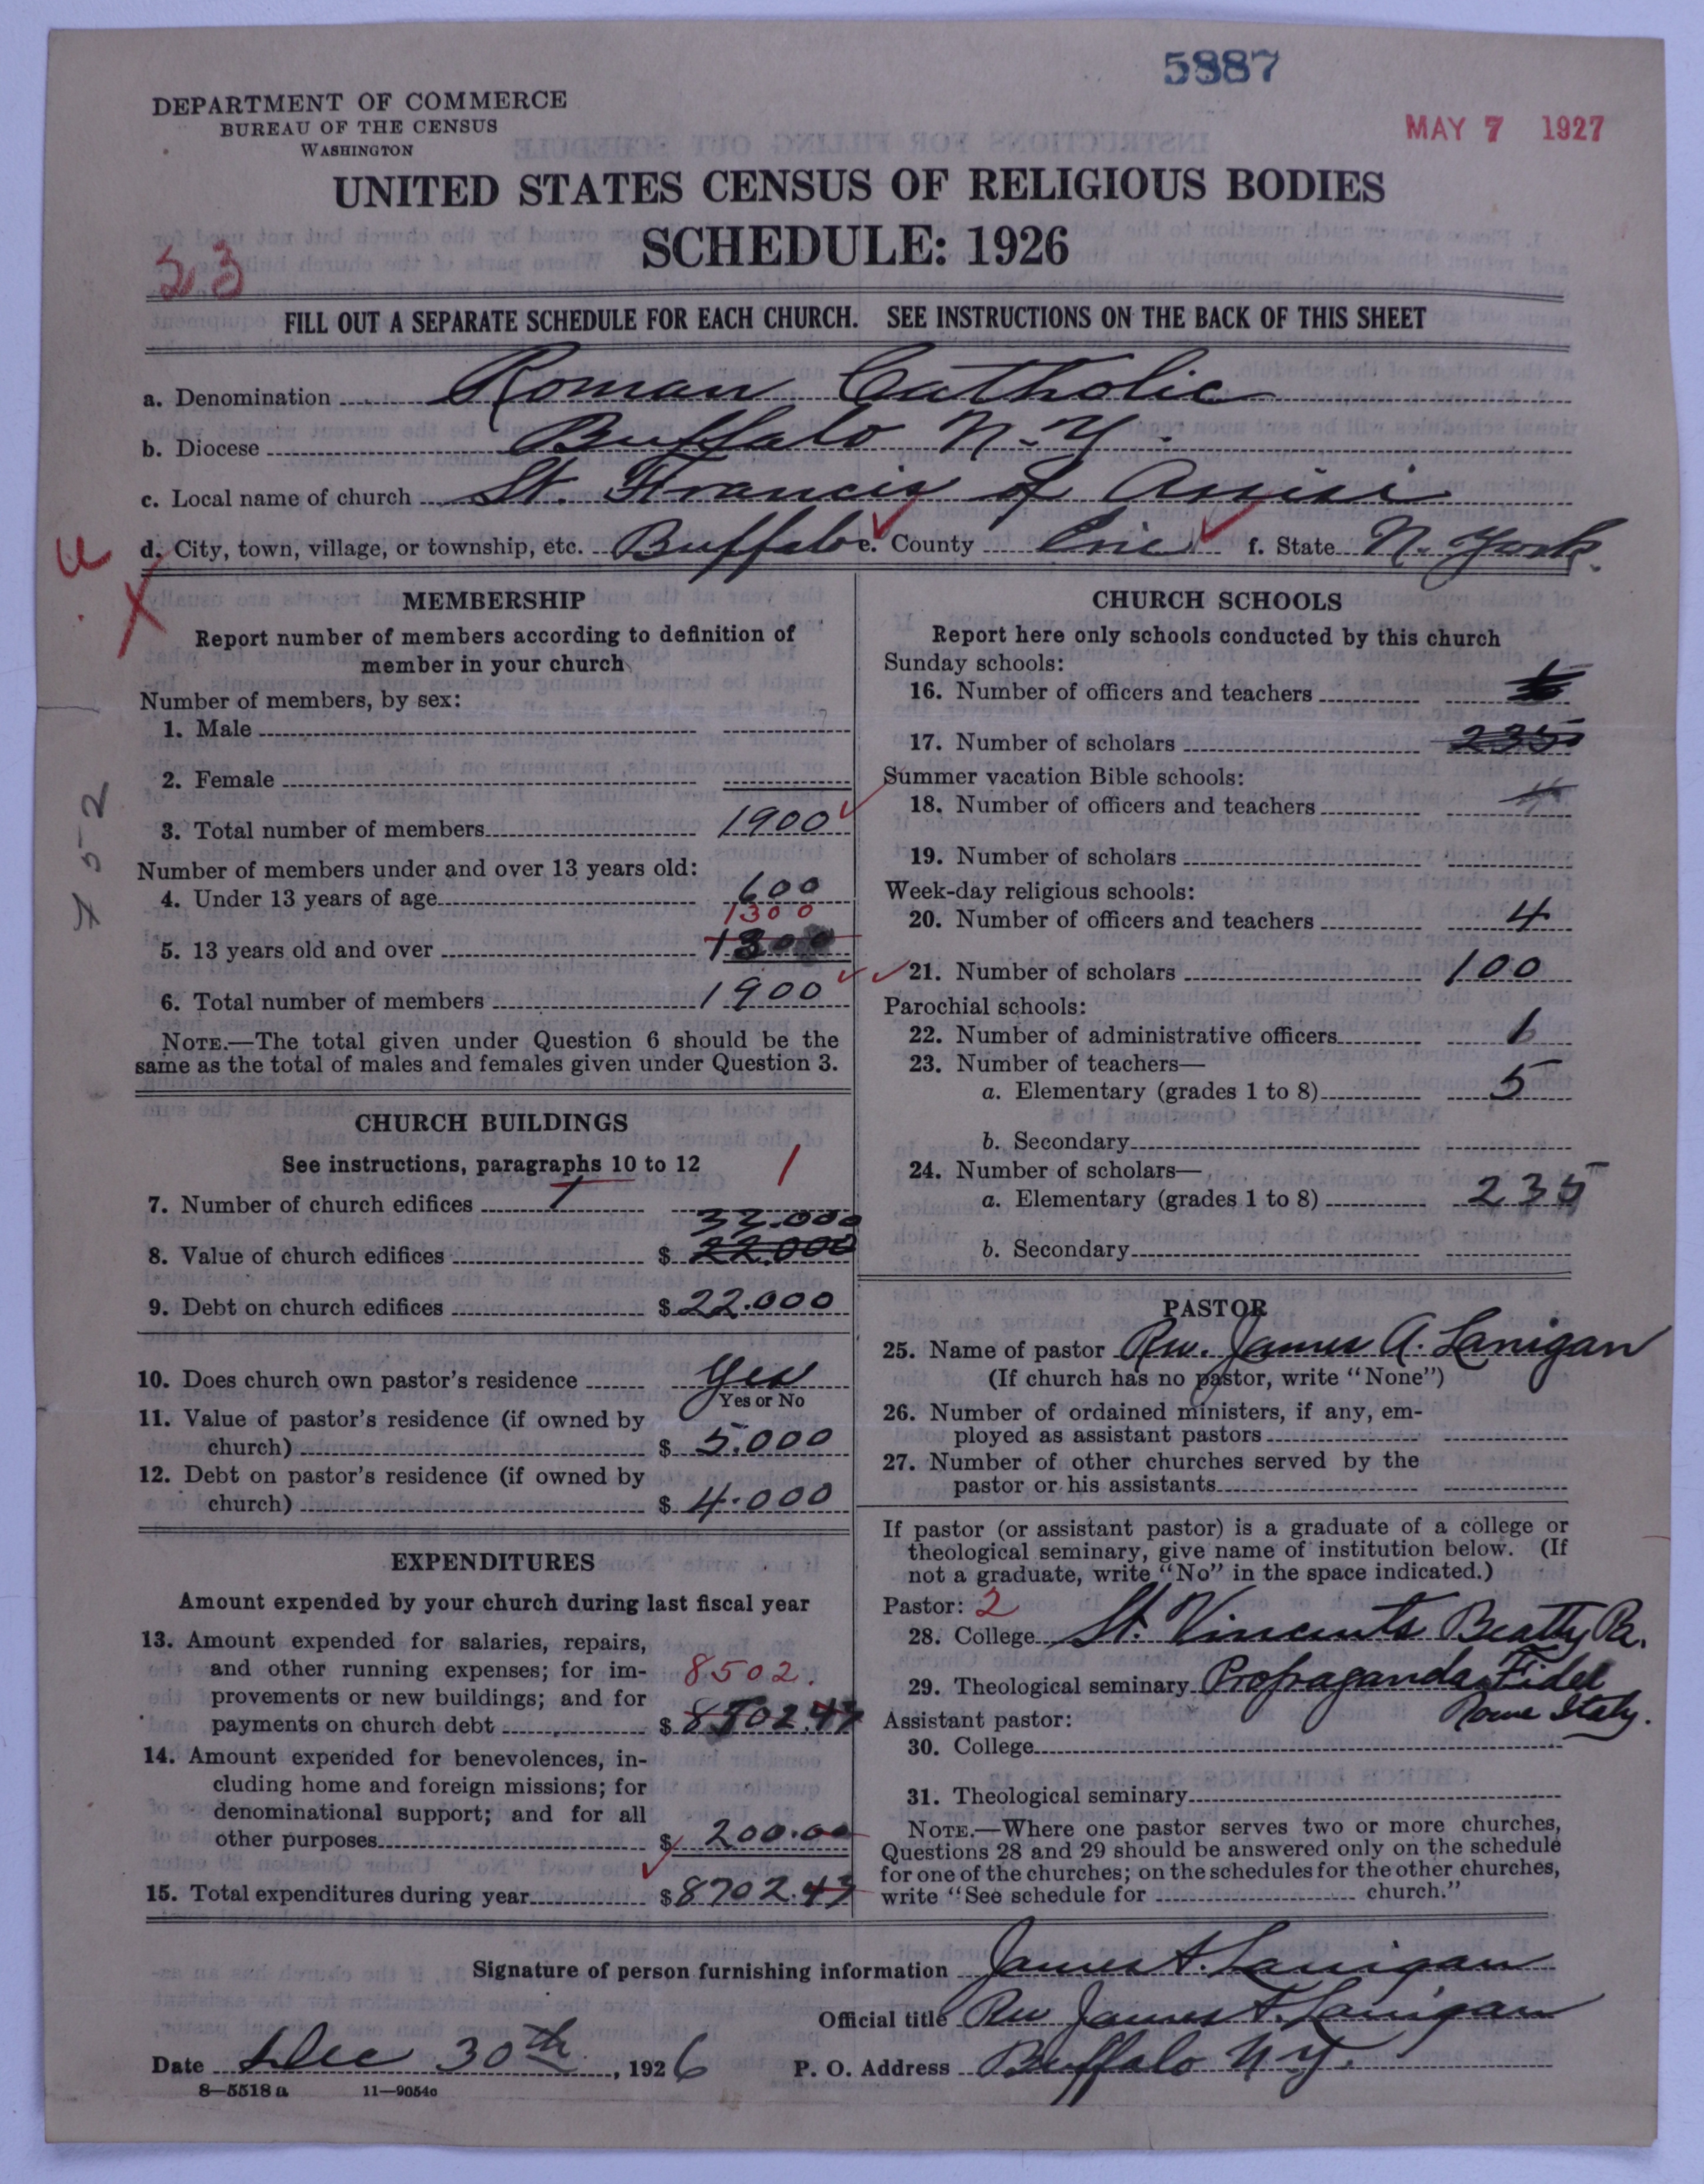 5887
MAY 7 1927
DEPARTMENT OF COMMERCE
BUREAU OF THE CENSUS
WASHINGTON
UNITED STATES CENSUS OF RELIGIOUS BODIES
SCHEDULE: 1926
23
FILL OUT A SEPARATE SCHEDULE FOR EACH CHURCH. SEE INSTRUCTIONS ON THE BACK OF THIS SHEET
a. Denomination Roman Catholic
b. Diocese Buffalo N.Y.
c. Local name of church St. Francis of Assisi
d. City, town, village, or township, etc. Buffalo e. County Erie f. State N. York.
MEMBERSHIP
Report number of members according to definition of
member in your church
Number of members, by sex:
1. Male
2. Female
3. Total number of members 1900
Number of members under and over 13 years old:
4. Under 13 years of age 600
1300
5. 13 years old and over 1300
6. Total number of members 1900
NOTE.—The total given under Question 6 should be the
same as the total of males and females given under Question 3.
752
CHURCH BUILDINGS
See instructions, paragraphs 10 to 12
7. Number of church edifices 1 1
33.000
8. Value of church edifices $ 22.000
9. Debt on church edifices $ 22.000
10. Does church own pastor's residence Yes
Yes or No
11. Value of pastor's residence (if owned by
church) $ 5.000
12. Debt on pastor's residence (if owned by
church) $ 4.000
EXPENDITURES
Amount expended by your church during last fiscal year
13. Amount expended for salaries, repairs,
and other running expenses; for im- 8502.
provements or new buildings; and for
payments on church debt $ 8502.43
14. Amount expended for benevolences, in-
cluding home and foreign missions; for
denominational support; and for all
other purposes $ 200.00
15. Total expenditures during year $ 8702.43
CHURCH SCHOOLS
Report here only schools conducted by this church
Sunday schools:
16. Number of officers and teachers
17. Number of scholars 235
Summer vacation Bible schools:
18. Number of officers and teachers
19. Number of scholars
Week-day religious schools:
20. Number of officers and teachers 4
21. Number of scholars 100
Parochial schools:
22. Number of administrative officers
23. Number of teachers—
a. Elementary (grades 1 to 8) 5
b. Secondary
24. Number of scholars—
a. Elementary (grades 1 to 8) 235
b. Secondary
PASTOR
25. Name of pastor Rev. James A. Lanigan
(If church has no pastor, write "None")
26. Number of ordained ministers, if any, em-
ployed as assistant pastors
27. Number of other churches served by the
pastor or his assistants
If pastor (or assistant pastor) is a graduate of a college or
theological seminary, give name of institution below. (If
not a graduate, write "No" in the space indicated.)
Pastor: 2
28. College St. Vincents Beatty Pa.
29. Theological seminary Propaganda Fidei
Rome Italy.
Assistant pastor:
30. College
31. Theological seminary
NOTE.—Where one pastor serves two or more churches,
Questions 28 and 29 should be answered only on the schedule
for one of the churches; on the schedules for the other churches,
write "See schedule for church."
Signature of person furnishing information James A. Lanigan
Official title Rev James A. Lanigan
Date Dec 30th, 1926 P. O. Address Buffalo N.Y.
8—5518 a 11—9054c